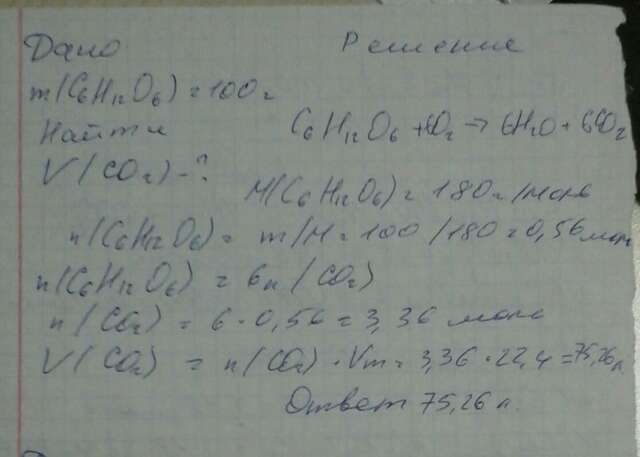 Дано Решение
m(C₆H₁₂O₆) = 100 г
Найти C₆H₁₂O₆ + 6O₂ → 6H₂O + 6CO₂
V(CO₂) - ?
M(C₆H₁₂O₆) = 180 г/моль
n(C₆H₁₂O₆) = m/M = 100/180 = 0,56 мол
n(C₆H₁₂O₆) = 6n(CO₂)
n(CO₂) = 6 · 0,56 = 3,36 моль
V(CO₂) = n(CO₂) · Vm = 3,36 · 22,4 = 75,26 л
Ответ 75,26 л.